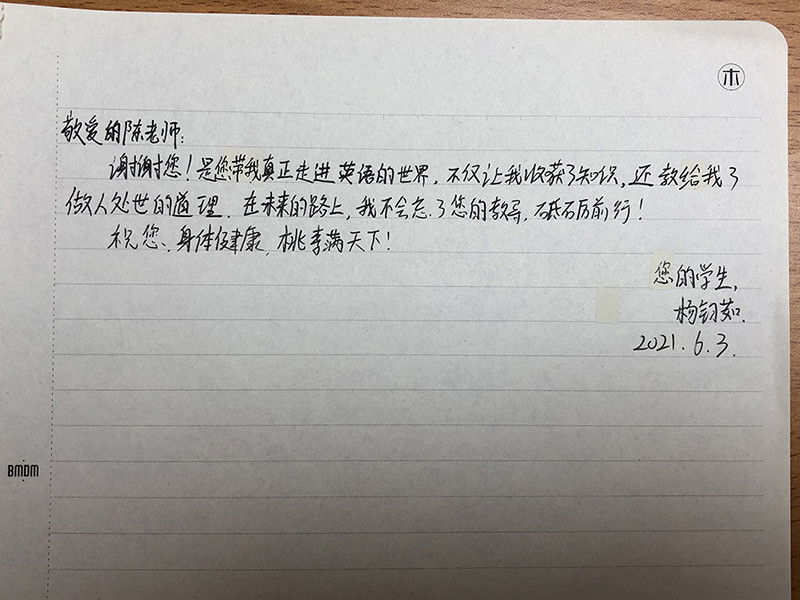 木
敬爱的陈老师:
谢谢您！是您带我真正走进英语的世界，不仅让我收获了知识，还教给我了
做人处世的道理．在未来的路上，我不会忘了您的教导，砥砺前行！
祝您、身体健康，桃李满天下！
您的学生，
杨钧茹．
2021.6.3.
BMDM